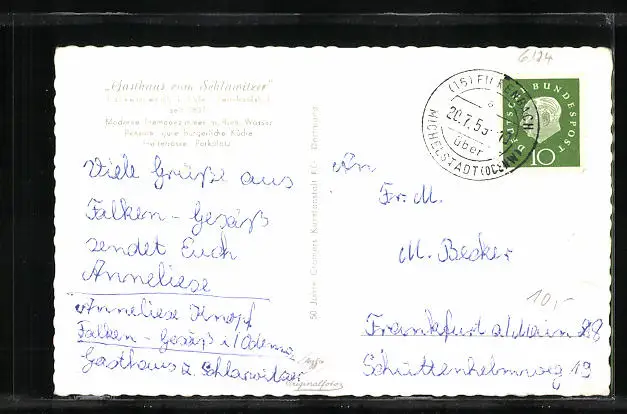 „Gasthaus zum Schlawitzer"
Moderne Fremdenzimmer m. fließ. Wasser
gute bürgerliche Küche
Parkplatz
Viele Grüße aus
Falken-Gesäß
sendet Euch
Anneliese
Anneliese Knopf
Falken-Gesäß i/Odenw.
Gasthaus z. Schlawitzer
Originalfoto
50 Jahre Cramers Kunstanstalt KG. Dortmund
6124
(16)
20.7.59
über
MICHELSTADT (ODENW)
DEUTSCHE BUNDESPOST
10
An
Fr. M.
M. Becker
10,-
Frankfurt a/Main
Schüttenhelmweg 19